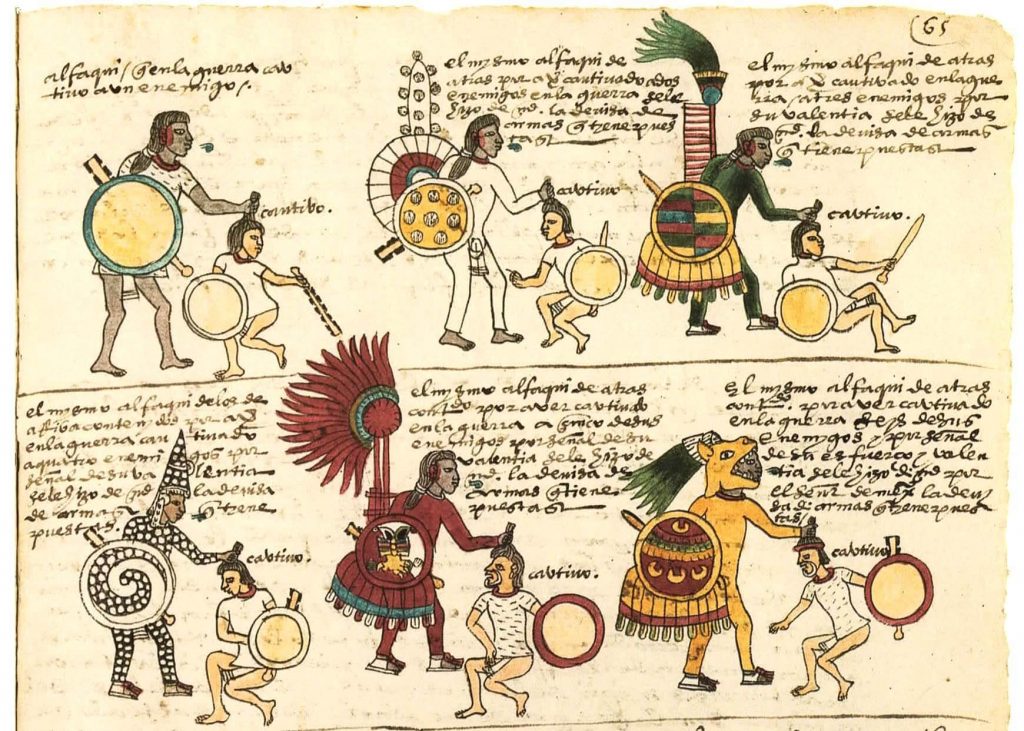 65
alfaqui / q̃ en la guerra cau
tivo a un enemigo /.
cautivo.
el mysmo alfaqui de
atras por aver cautivado a dos
enemigos en la guerra se le
hizo de md. la devisa de
armas q̃ tiene pues
tas
cautivo
el mysmo alfaqui de atras
por aver cautivado en la gue
rra / a tres enemigos por
su valentia se le hizo de
md. la devisa de armas
q̃ tiene puestas
cautivo.
el mysmo alfaqui de los de
arriba contenydos por aver
en la guerra cau tivado
a quatro enemi gos por
señal de su va lentia
se le hizo de md la devisa
de armas q̃ tiene
puestas.
cautivo.
el mysmo alfaqui de atras
contdo por aver cautivado
en la guerra a cinco de sus
enemigos por señal de su
valentia se le hizo de
md. la devisa de
armas q̃ tiene
puestas
cautivo.
El mismo alfaqui de atras
contdo. por aver cautivado
en la guerra seys de sus
enemygos y por señal
de su esfuerço y valen
tia se le hizo de md por
el señor de mexco la devi
sa de armas q̃ tiene pues
tas /
cautivo